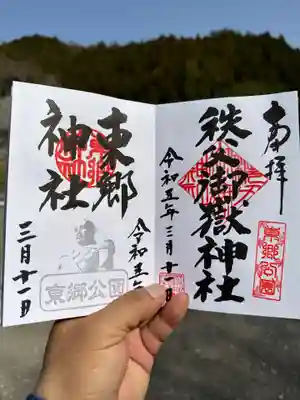 奉拝
秩父御嶽神社
令和五年三月十一日
東郷公園
東郷
神社
令和五年
三月十一日
東郷公園